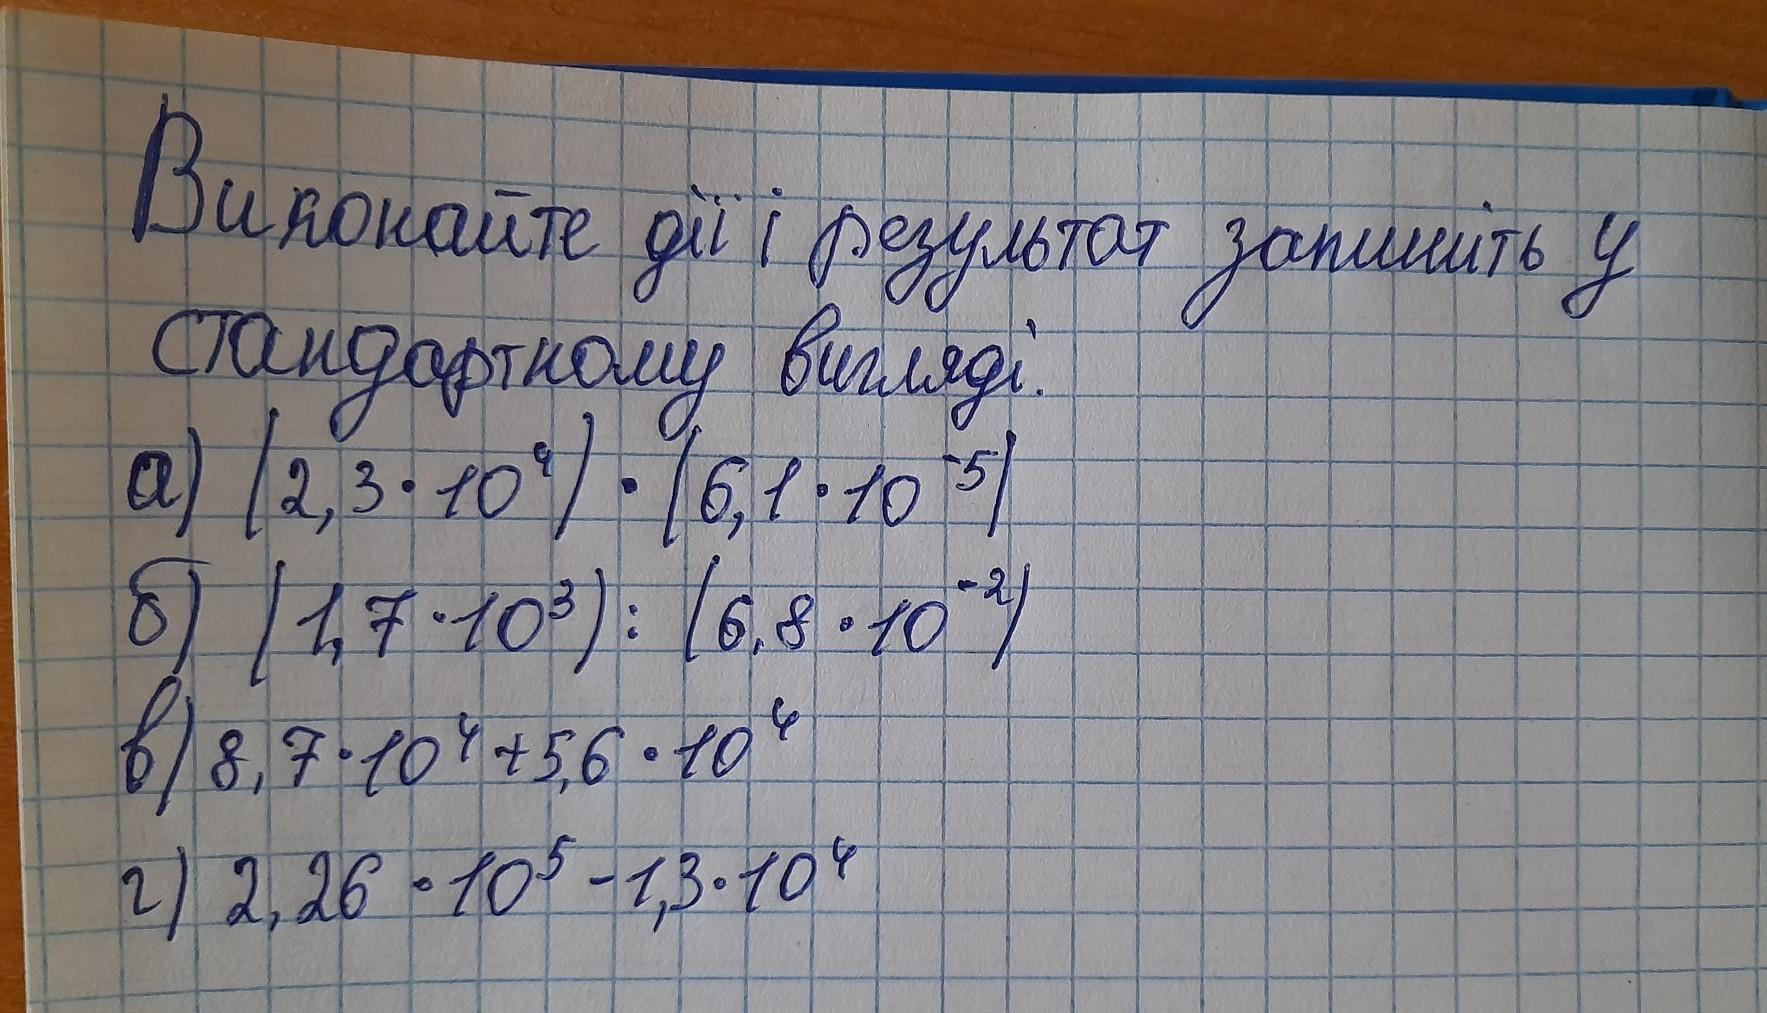 Виконайте дії і результат запишіть у
стандартному вигляді.
а) (2,3·10⁴)·(6,1·10⁻⁵)
б) (1,7·10³):(6,8·10⁻²)
в) 8,7·10⁴+5,6·10⁴
г) 2,26·10⁵-1,3·10⁴